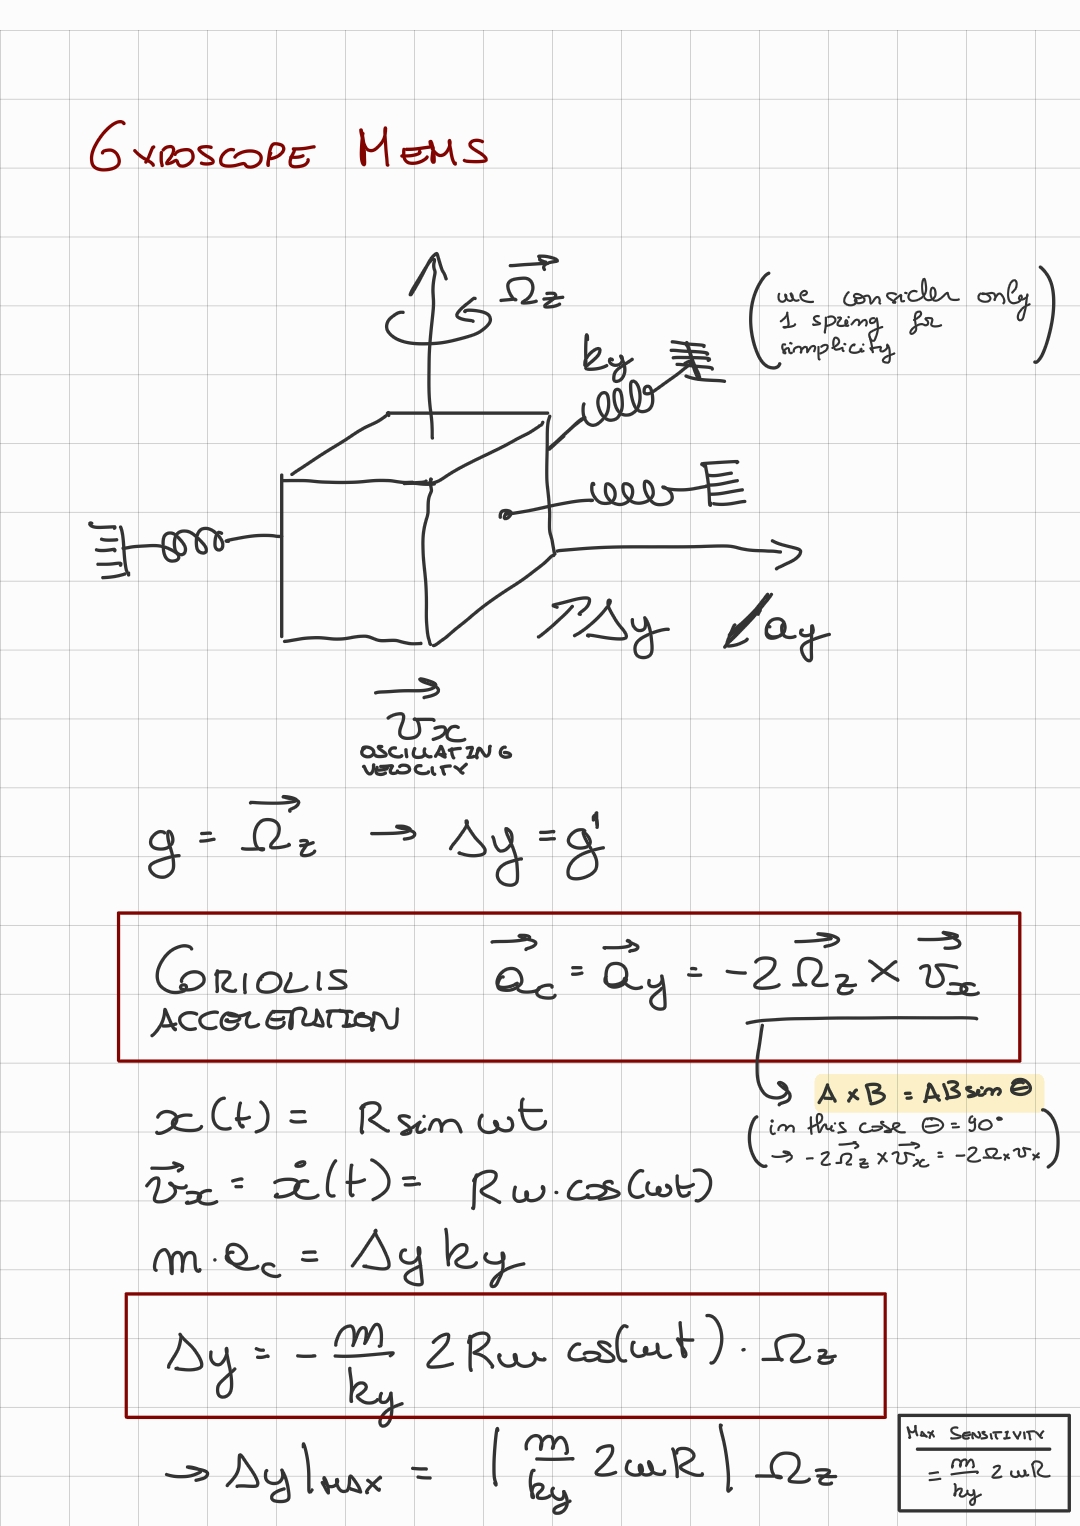 GYROSCOPE MEMS
Ω⃗z
(we consider only
1 spring for
simplicity)
ky
Δy
ay
v⃗x
OSCILLATING
VELOCITY
g = Ω⃗z → Δy = g'
CORIOLIS
ACCELERATION
a⃗c = a⃗y = -2 Ω⃗z × v⃗x
A × B = AB sin Θ
(in this case Θ = 90°
→ -2 Ω⃗z × v⃗x = -2Ωx vx)
x(t) = R sin ωt
v⃗x = ẋ(t) = Rω · cos(ωt)
m · ac = Δy ky
Δy = - m/ky 2Rω cos(ωt) · Ωz
→ Δy|MAX = | m/ky 2ωR | Ωz
MAX SENSITIVITY
= m/ky 2ωR